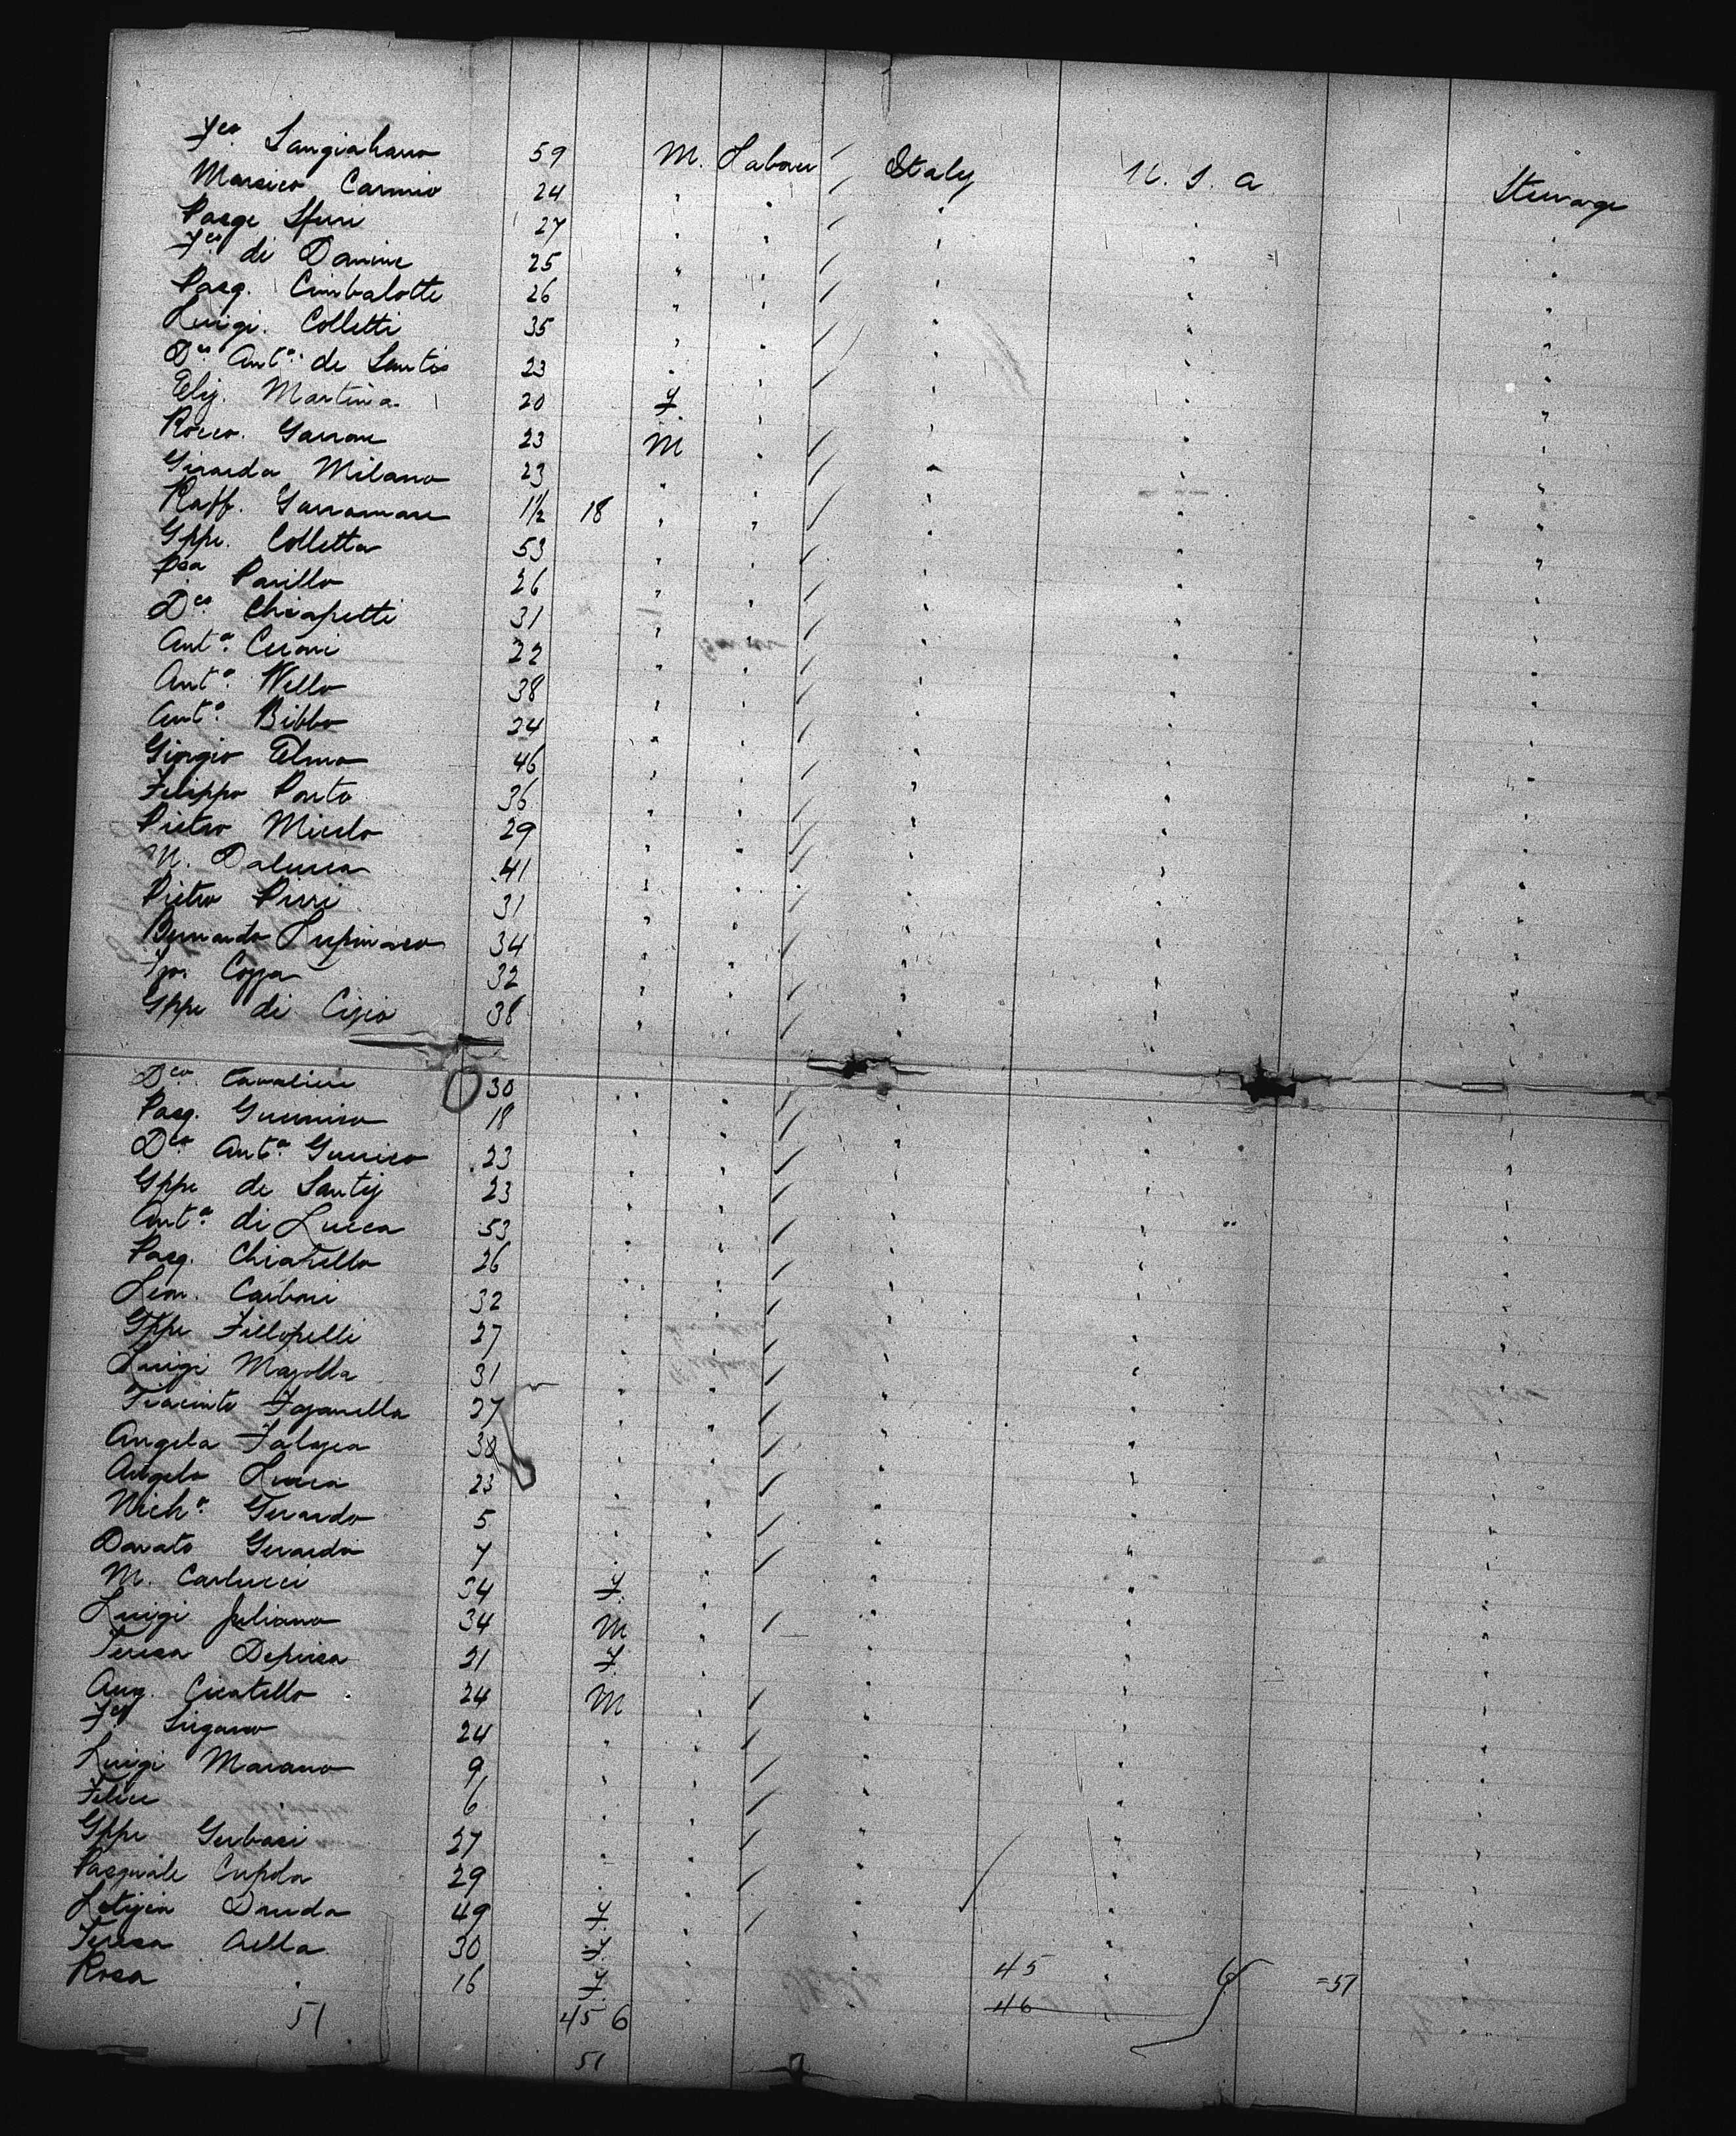 Fco. Sangiahano 59 M. Labour / Italy U. S. A Steerage
Marsico Carmio 24 " " / " " "
Pasqe Sfusi 27 " " / " " "
Fco di Danine 25 " " / " " "
Pasq. Cimbalotte 26 " " / " " "
Luigi. Colletti 35 " " / " " "
Dco Anto. de Santis 23 " " / " " "
Elij. Martina 20 f. " " " "
Rocco. Garrone 23 M " / " " "
Girarda Milano 23 " " / " " "
Raff. Garramone 1½ 18 " " / " " "
Gppe. Colletta 53 " " / " " "
Psa Parillo 26 " " / " " "
Dco Chiapetti 31 " " / " " "
Anto. Ceroni 22 " " / " " "
Anto. Nello 38 " " / " " "
Anto. Bibbo 24 " " / " " "
Giorgio Elmo 46 " " / " " "
Filippo Porto 36 " " / " " "
Pietro Miculo 29 " " / " " "
N. Dalucca 41 " " / " " "
Pietro Pirri 31 " " / " " "
Bernardo Lupinaco 34 " " / " " "
Coppa 32 " " / " " "
Gppe di Cizio 38 " " / " " "
Dco. Cavaliere 30 " " / " " "
Pasq. Guerriero 18 " " / " " "
Dco Anto. Guerrico 23 " " / " " "
Gppe de Santis 23 " " / " " "
Anto. di Lucca 53 " " / " " "
Pasq. Chiatello 26 " " / " " "
Leon. Carboni 32 " " / " " "
Gppe Fillopelli 27 " " / " " "
Luigi Mazolla 31 " " / " " "
Giacinto Fazanella 27 " " / " " "
Angela Falazea 38 " " / " " "
Angelo Lucca 23 " " / " " "
Micho. Gerardo 5 " " / " " "
Donato Gerardo 7 " " / " " "
M. Carlucci 34 f. " " " "
Luigi Juliano 34 M " / " " "
Teresa Depresa 21 f. " " " "
Ang. Cicatello 24 M " / " " "
Fco Sirgano 24 " " / " " "
Luigi Marano 9 " " / " " "
Felice 6 " " / " " "
Gppe Gerbasi 27 " " / " " "
Pasquale Cupola 29 " " / " " "
Letizia Druda 49 f. " / " " "
Teresa Aella 30 f. " " " "
Rosa " 16 f. " " 45 " 6 =51 "
51 45 6 46
51